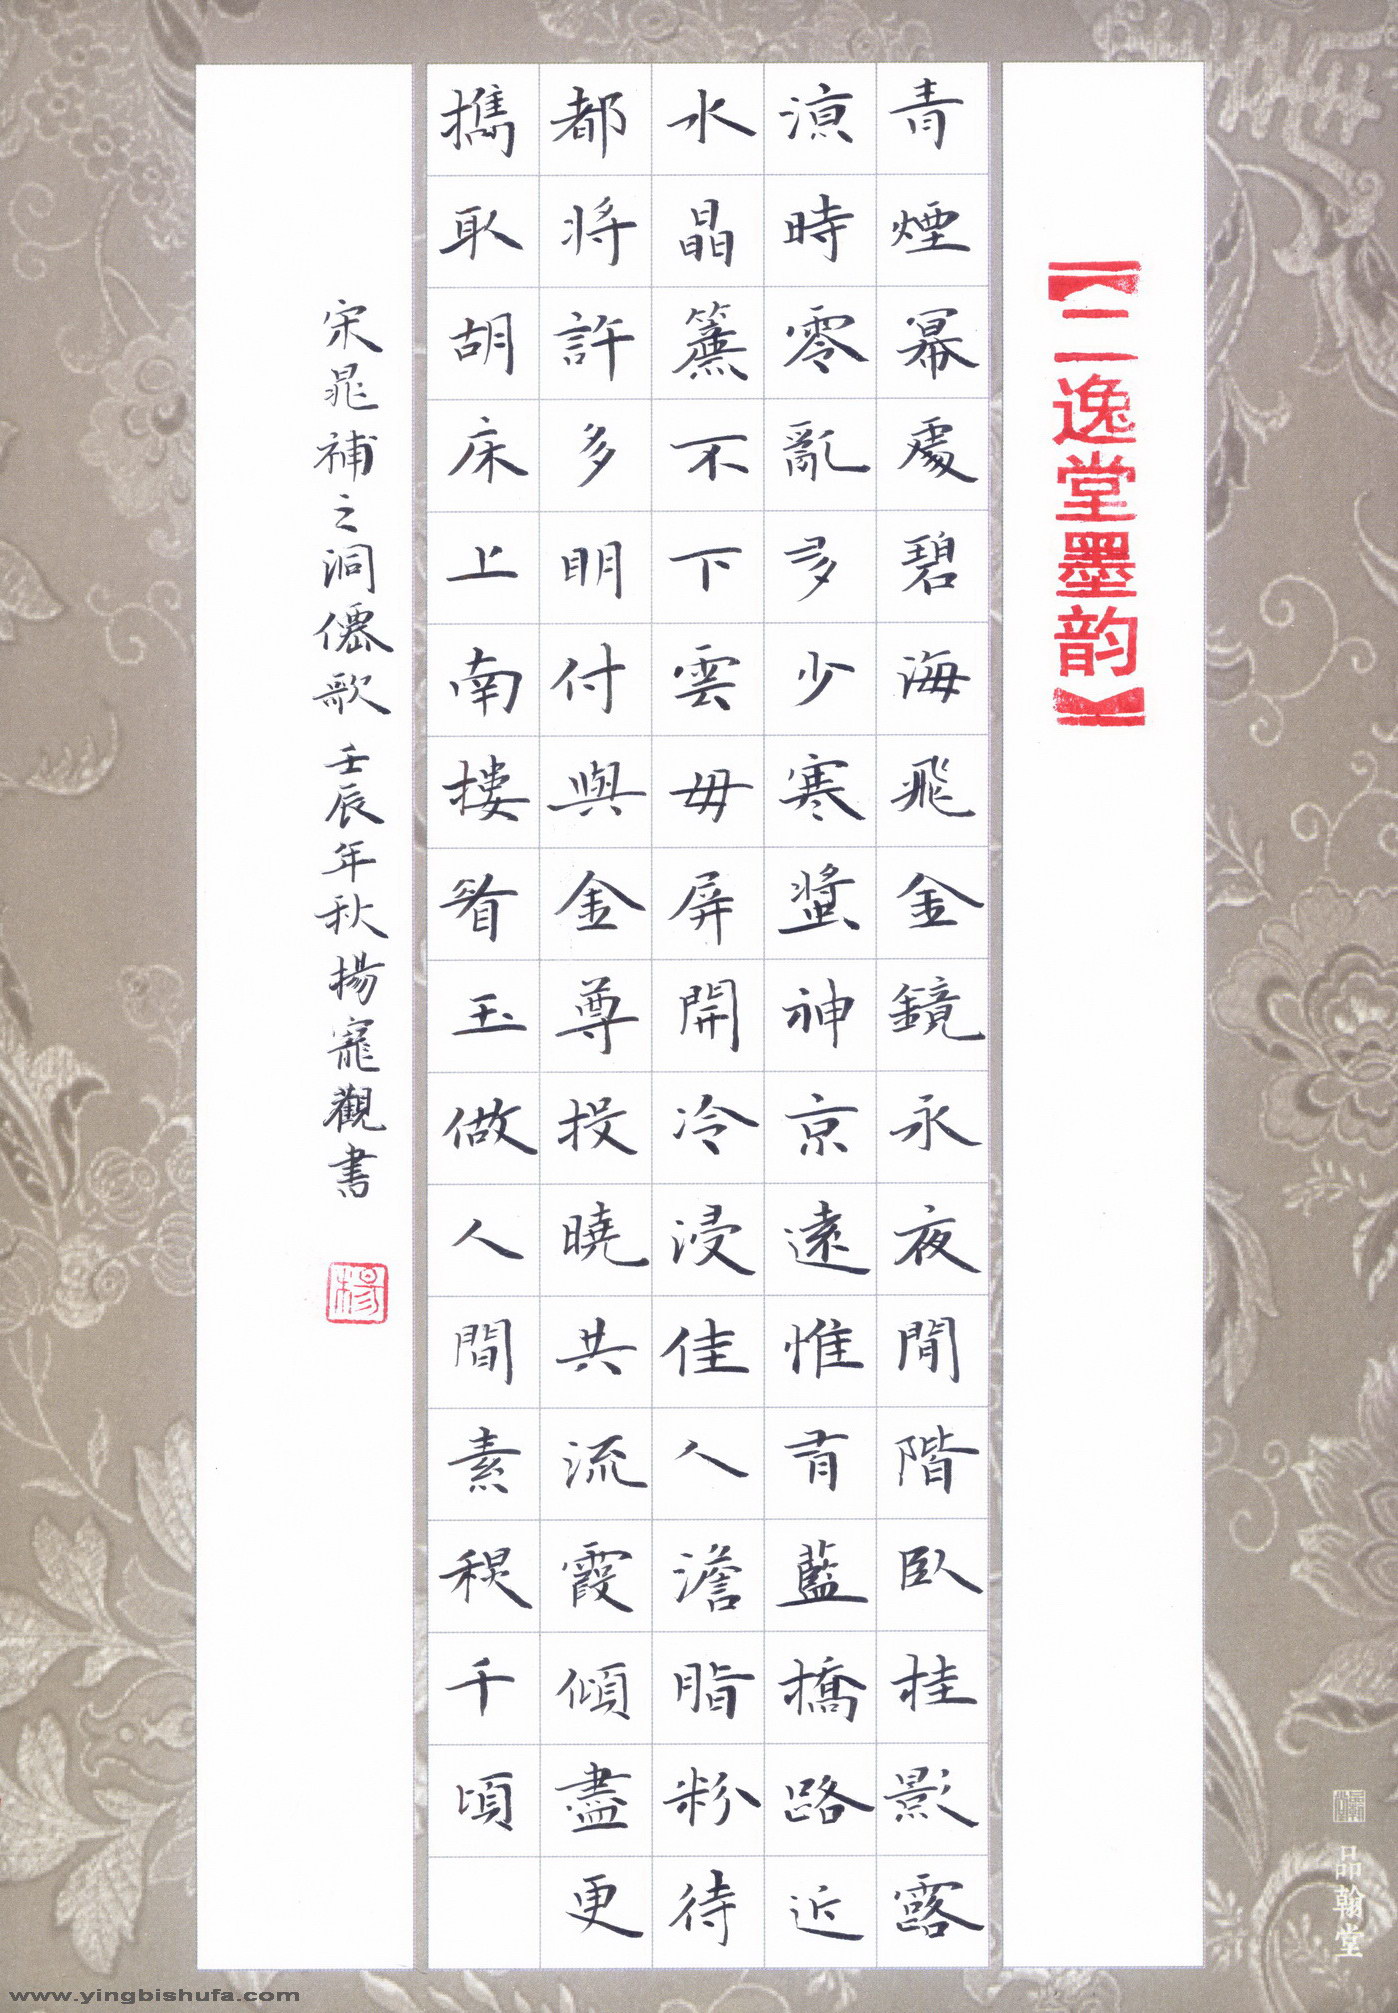 【二逸堂墨韵】
青煙冪處碧海飛金鏡永夜閒階臥桂影露
涼時零亂多少寒螿神京遠惟有藍橋路近
水晶簾不下雲母屏開冷浸佳人澹脂粉待
都將許多明付與金尊投曉共流霞傾盡更
攜取胡床上南樓看玉做人間素秋千頃
宋晁補之洞僊歌 壬辰年秋楊寵觀書
楊
品翰堂
www.yingbishufa.com